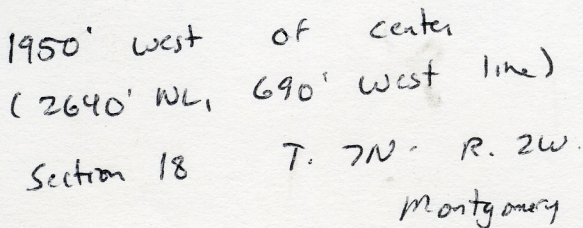 1950' west of center
(2640' NL, 690' west line)
Section 18 T. 7N. R. 2W.
Montgomery